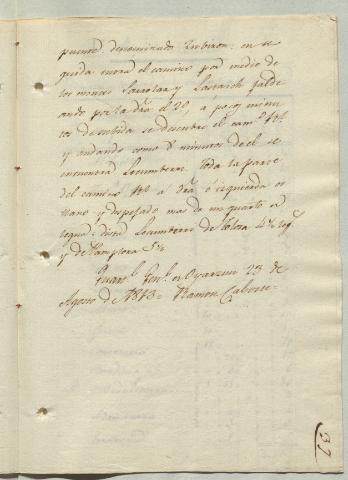 puente denominado Urbiron: en se
guida entra el camino por medio de
los montes Larrolaz y Larraich falde
ando por la dra. el 20, a pocos minu
tos de subida se descubre el camo. Rl.
y andando como 8 minutos de el se
encuentra Lecumberri. Toda la parte
del camino Rl. a dra. é izquierda es
llano y despejado mas de un quarto de
legua: dista Lecumberri de Tolosa 4½ legs.
y de Pamplona 5½
Quarl. Genl. de Oyarzun 23 de
Agosto de 1813 = Ramon Calvet =